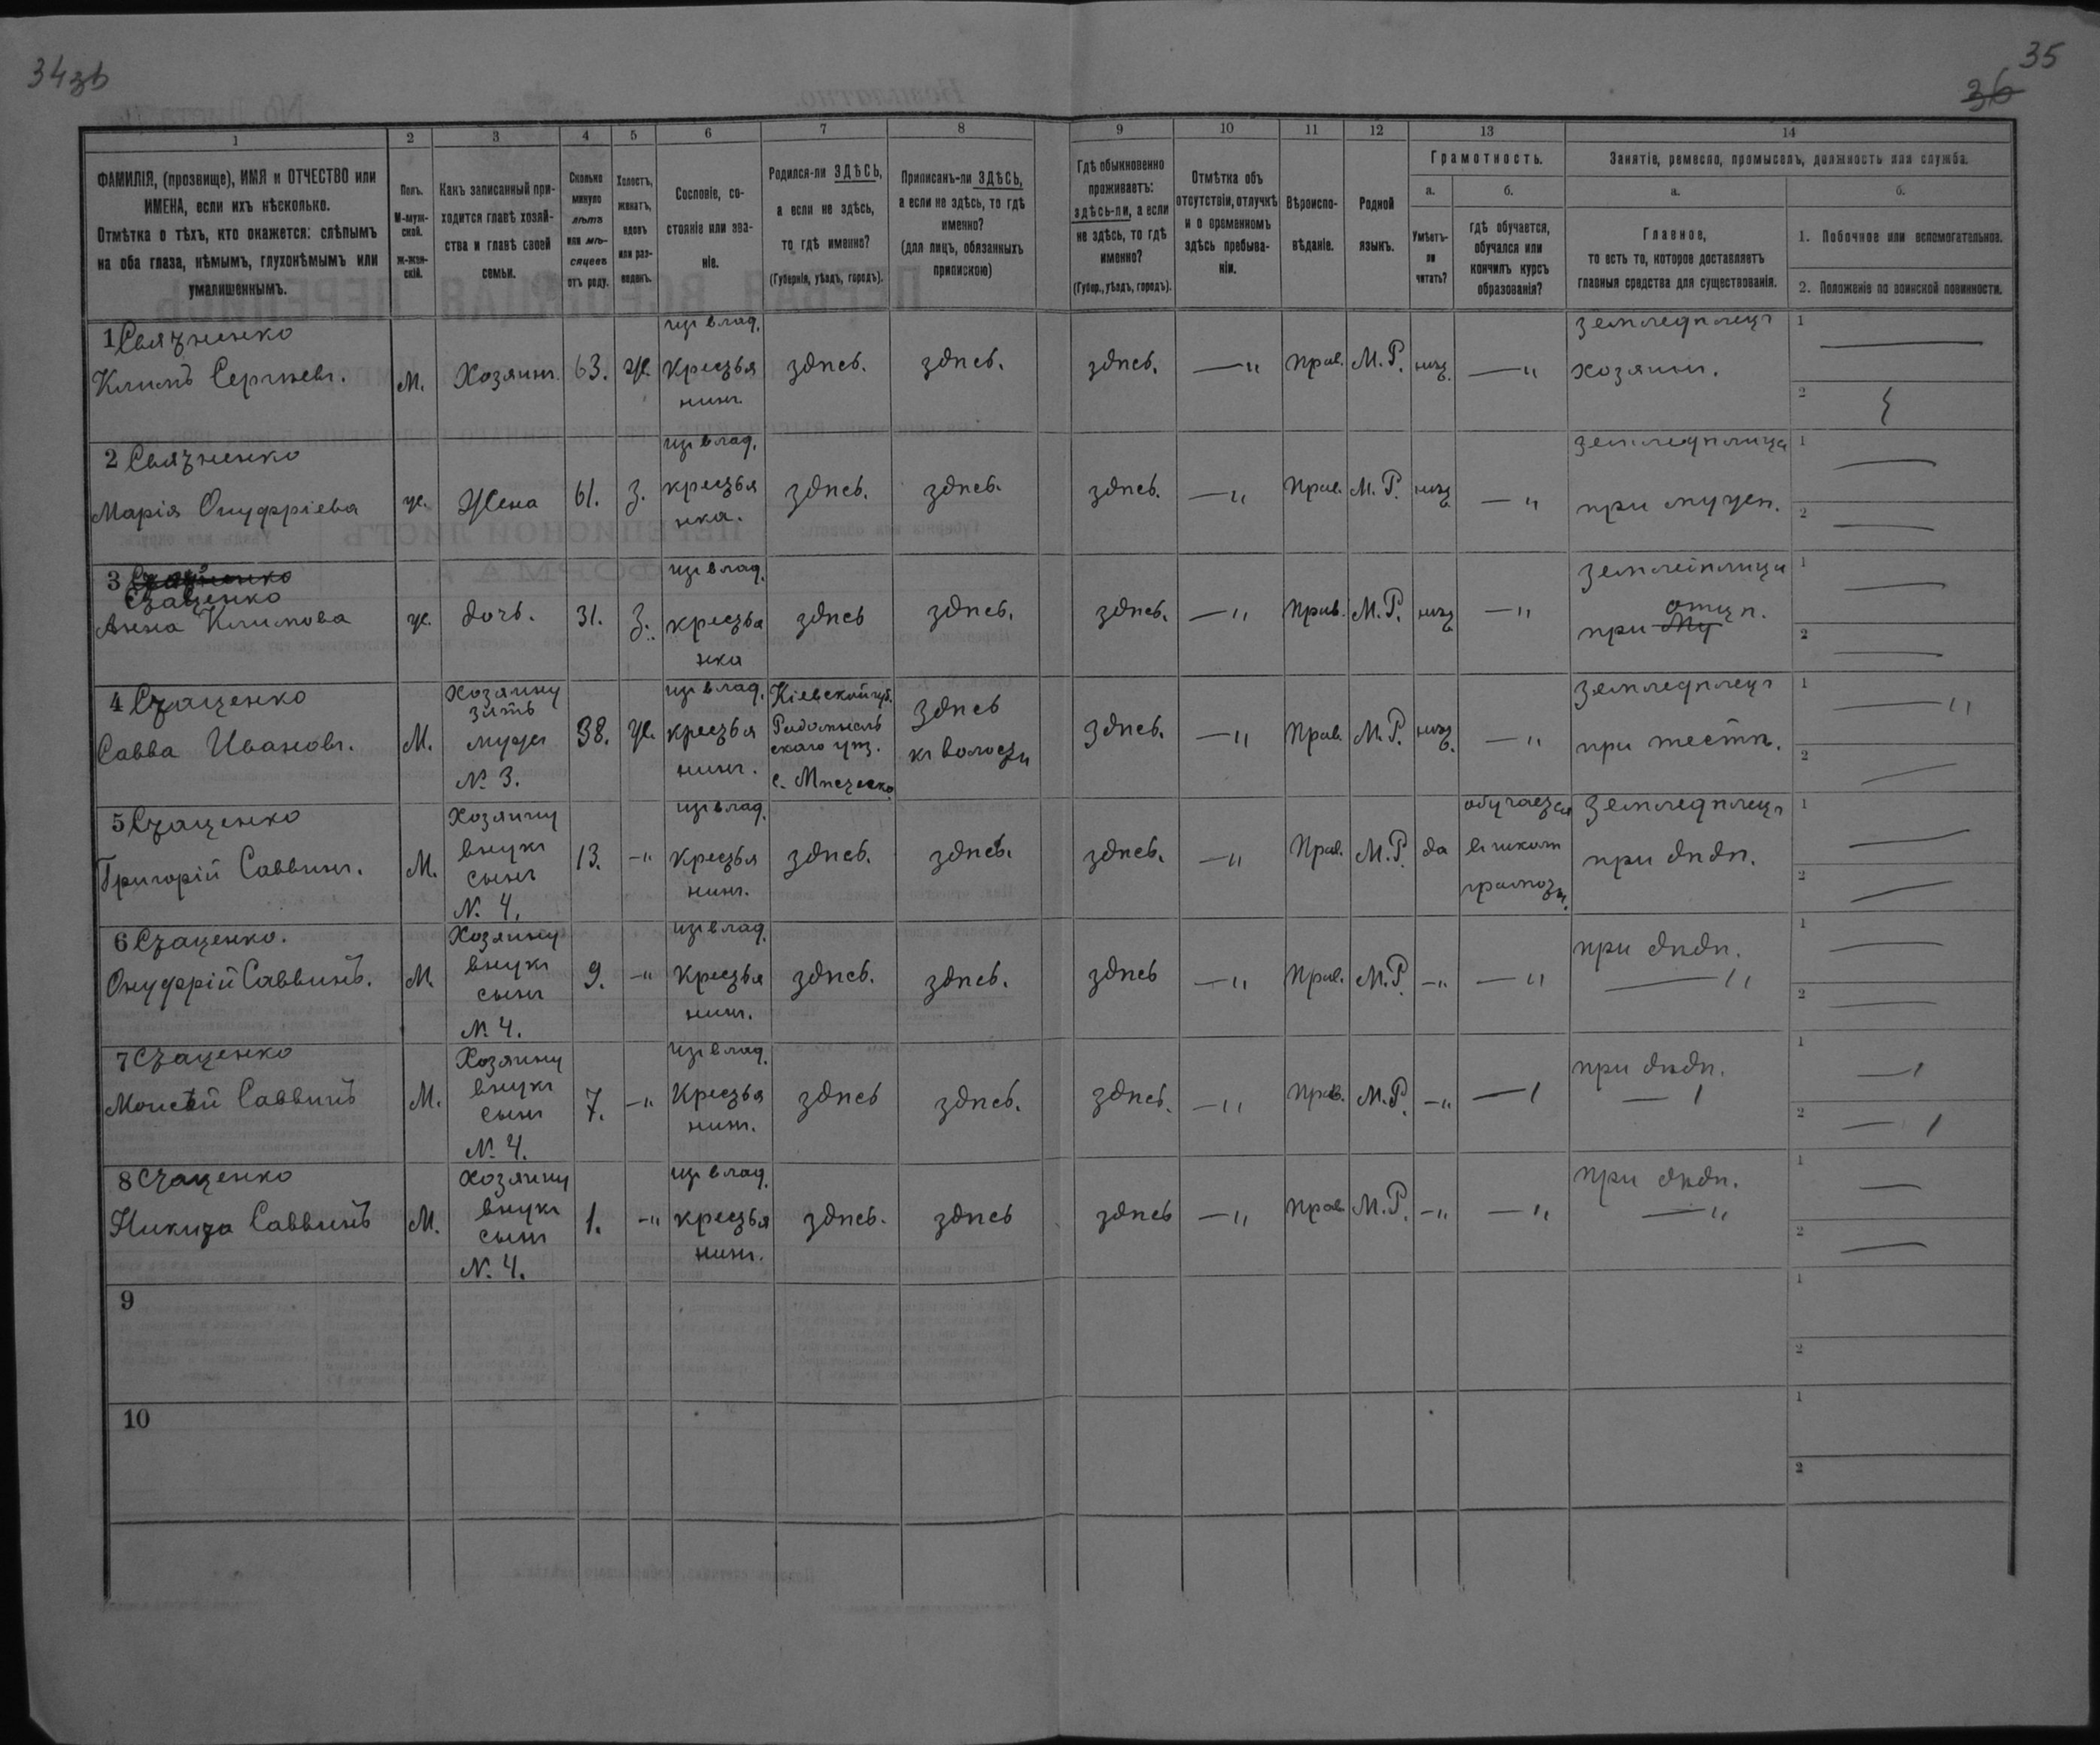 34зв
35
36
1
2
3
4
5
6
7
8
9
10
11
12
13
14
ФАМИЛІЯ, (прозвище), ИМЯ и ОТЧЕСТВО или
ИМЕНА, если ихъ нѣсколько.
Отмѣтка о тѣхъ, кто окажется: слѣпымъ
на оба глаза, нѣмымъ, глухонѣмымъ или
умалишеннымъ.
Полъ.
М-муж-
ской.
ж-жен-
скій.
Какъ записанный при-
ходится главѣ хозяй-
ства и главѣ своей
семьи.
Сколько
минуло
лѣтъ
или мѣ-
сяцевъ
отъ роду.
Холостъ,
женатъ,
вдовъ
или раз-
веденъ.
Сословіе, со-
стояніе или зва-
ніе.
Родился-ли ЗДѢСЬ,
а если не здѣсь,
то гдѣ именно?
(Губернія, уѣздъ, городъ).
Приписанъ-ли ЗДѢСЬ,
а если не здѣсь, то гдѣ
именно?
(для лицъ, обязанныхъ
припискою)
Гдѣ обыкновенно
проживаетъ:
здѣсь-ли, а если
не здѣсь, то гдѣ
именно?
(Губер., уѣздъ, городъ).
Отмѣтка объ
отсутствіи, отлучкѣ
и о временномъ
здѣсь пребыва-
ніи.
Вѣроиспо-
вѣданіе.
Родной
языкъ.
Грамотность.
а.
б.
Умѣетъ-
ли
читать?
гдѣ обучается,
обучался или
кончилъ курсъ
образованія?
Занятіе, ремесло, промыселъ, должность или служба.
а.
б.
Главное,
то есть то, которое доставляетъ
главныя средства для существованія.
1. Побочное или вспомогательное.
2. Положеніе по воинской повинности.
1
Климъ Сергѣевъ.
М.
Хозяинъ
63.
Ж.
изъ влад.
Крестья
нинъ.
здѣсь.
здѣсь.
здѣсь.
—"
Прав.
М.Р.
нѣтъ
—"
земледѣлецъ
хозяинъ.
1
2
2
Марія Онуфріева
ж.
Жена
61.
З.
изъ влад.
крестья
нка.
здѣсь.
здѣсь.
здѣсь.
—"
Прав.
М.Р.
нѣтъ
—"
земледѣлица
при мужѣ.
1
2
3
Стаценко
Анна Климова
ж.
дочь.
31.
З.
изъ влад.
крестья
нка
здѣсь
здѣсь.
здѣсь.
—"
Прав.
М.Р.
нѣтъ
—"
при му отцѣ.
1
2
4 Стаценко
Савва Ивановъ.
М.
Хозяину
зять
мужъ
№ 3.
38.
Ж.
изъ влад.
крестья
нинъ.
Кіевской губ.
Радомысль
скаго уѣз.
здѣсь
къ волости
здѣсь.
—"
Прав.
М.Р.
нѣтъ.
—"
земледѣлецъ
при тестѣ.
1 —"
2
5 Стаценко
Григорій Саввинъ.
М.
Хозяину
внукъ
сынъ
№ 4.
13.
—"
изъ влад.
Крестья
нинъ.
здѣсь.
здѣсь.
здѣсь.
—"
Прав.
М.Р.
да
обучается
въ школѣ
грамоты.
земледѣлецъ
при дѣдѣ.
1
2
6 Стаценко.
Онуфрій Саввинъ.
М.
Хозяину
внукъ
сынъ
№ 4.
9.
—"
изъ влад.
Крестья
нинъ.
здѣсь.
здѣсь.
здѣсь
—"
Прав.
М.Р.
—"
—"
при дѣдѣ.
—"
1
2
7 Стаценко
Моисѣй Саввинъ
М.
Хозяину
внукъ
сынъ
№ 4.
7.
—"
изъ влад.
Крестья
нинъ.
здѣсь
здѣсь.
здѣсь.
—"
Прав.
М.Р.
—"
при дѣдѣ.
1
2
8 Стаценко
Никита Саввинъ
М.
Хозяину
внукъ
сынъ
№ 4.
1.
—"
изъ влад.
крестья
нинъ.
здѣсь.
здѣсь
здѣсь
—"
Прав
М.Р.
—"
—"
при дѣдѣ.
—"
1
2
9
1
2
10
1
2